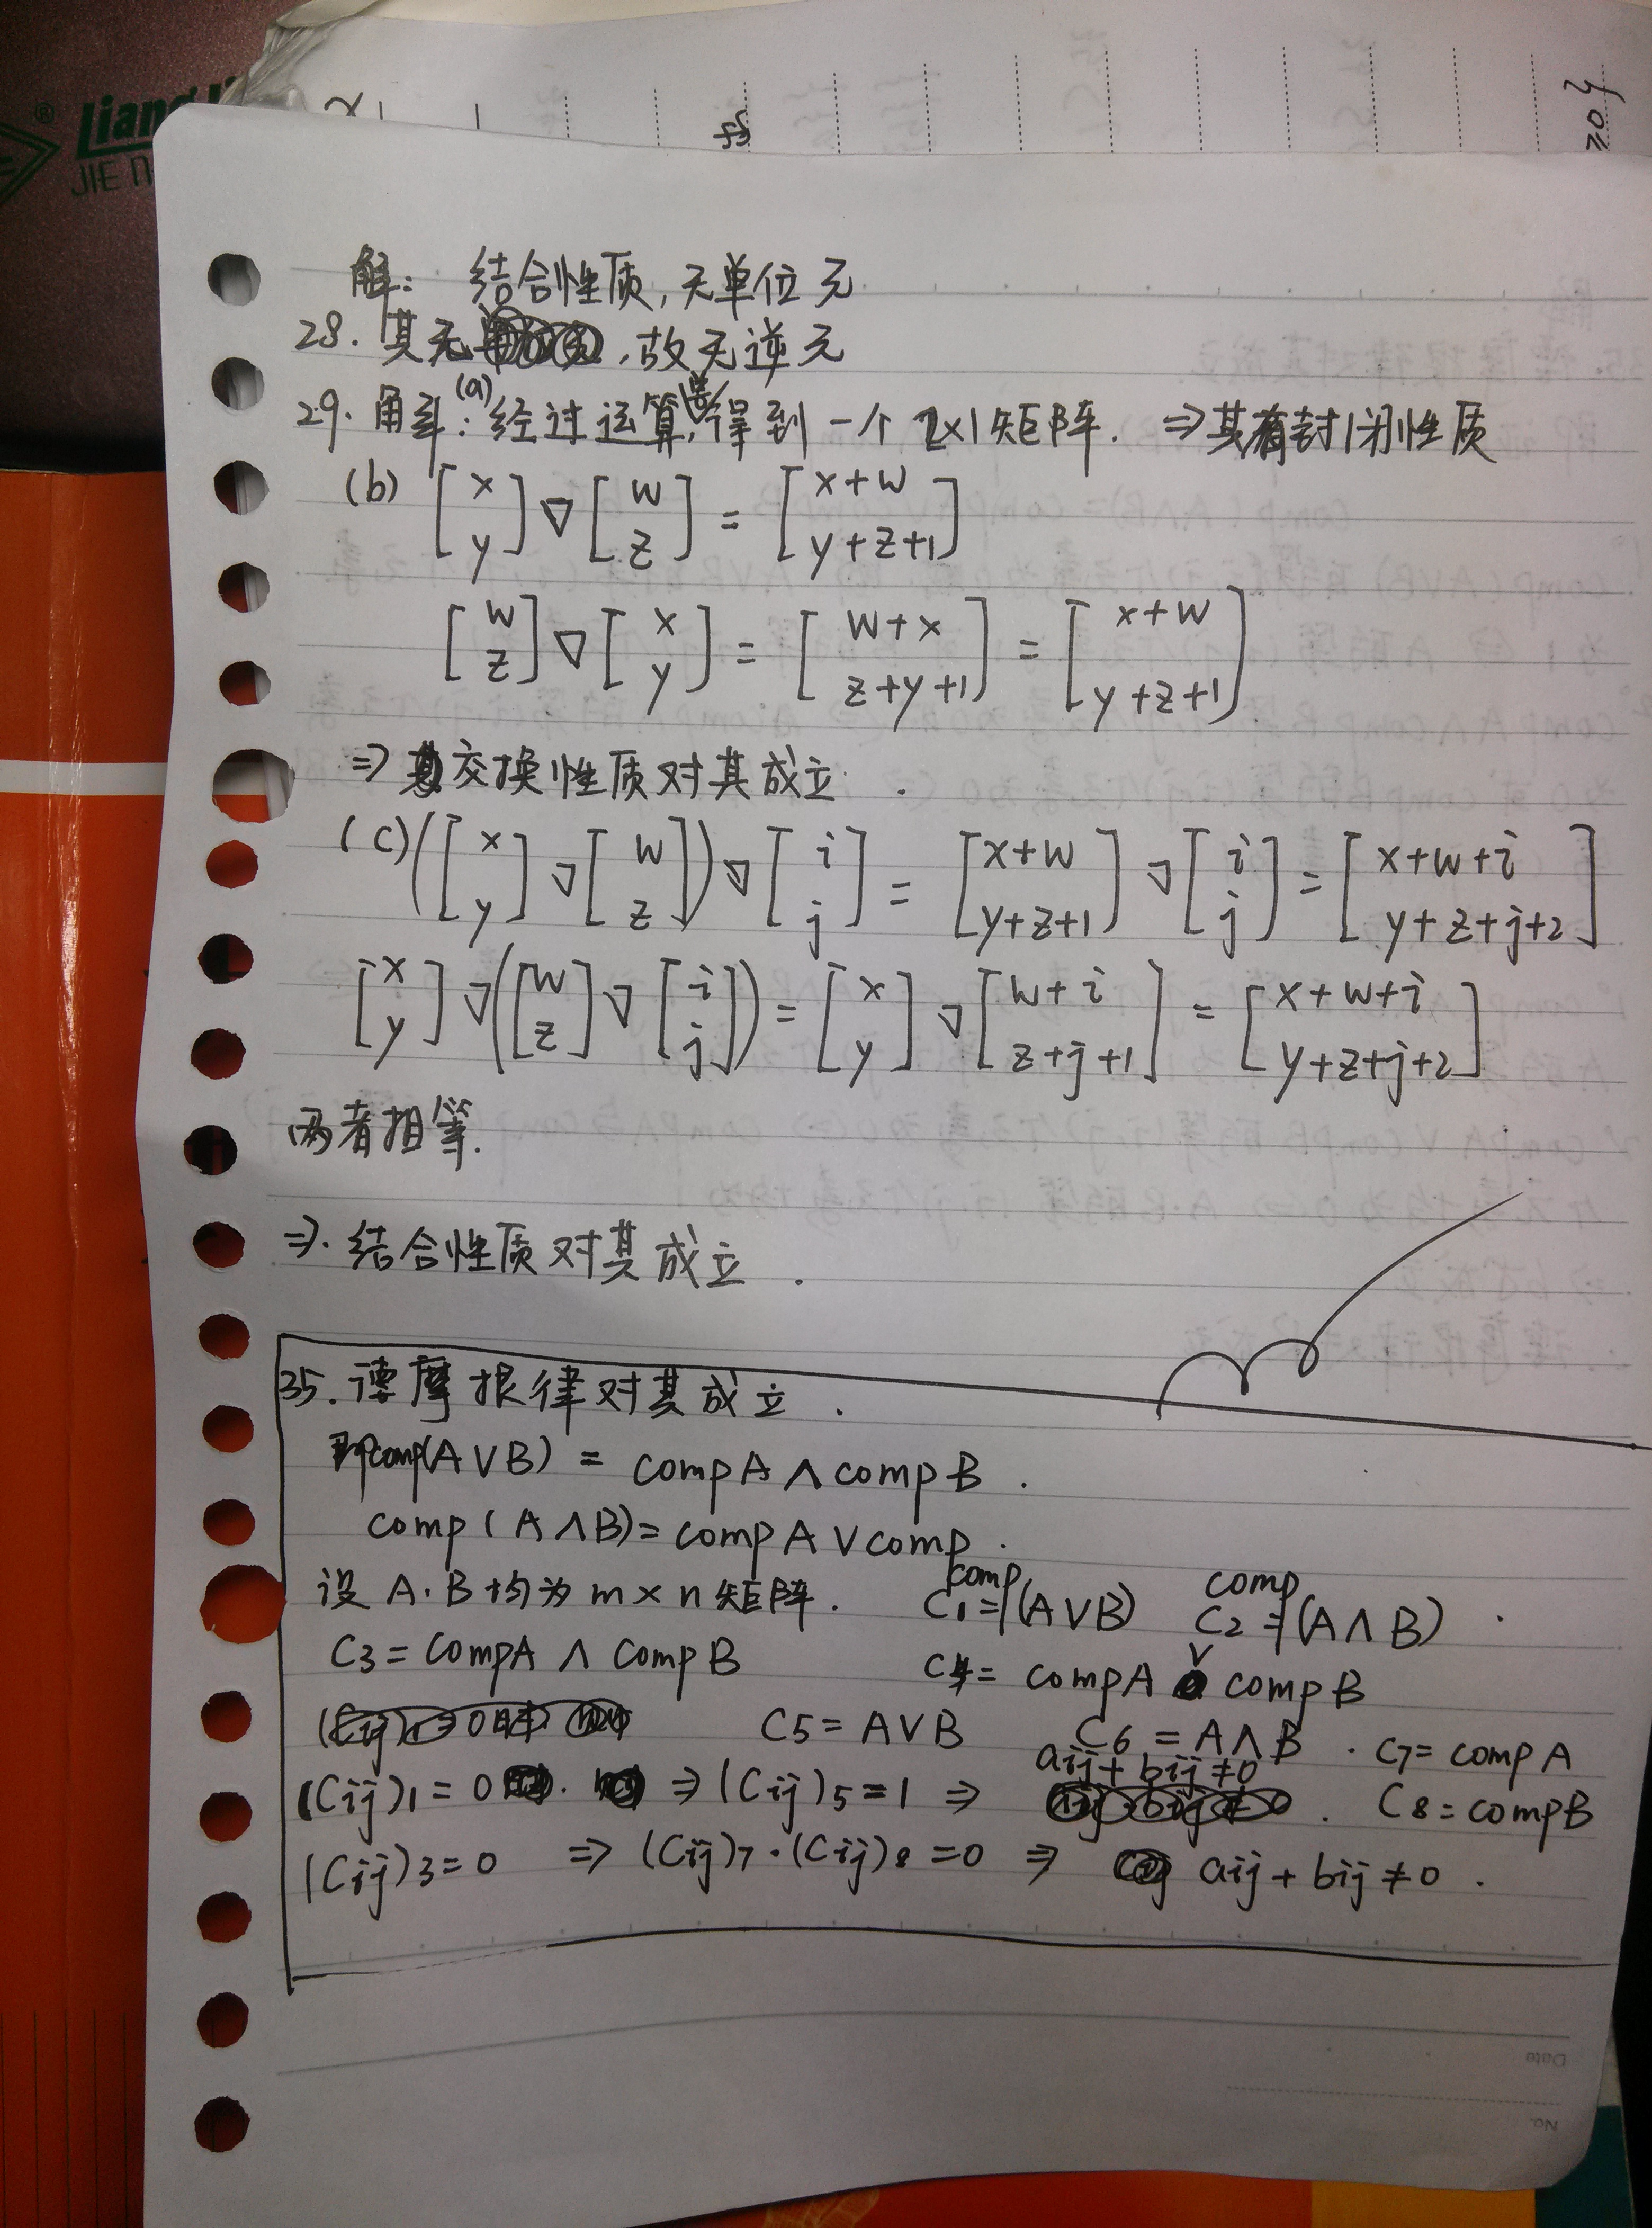 Liang
JIE
55
解： 结合性质，无单位元
28. 其无 ，故无逆元
29. 解：(a) 经过运算 得到一个 2×1矩阵. ⇒其有封闭性质
(b) [x y] ▽ [w z] = [x+w y+z+1]
[w z] ▽ [x y] = [w+x z+y+1] = [x+w y+z+1]
⇒ 交换性质对其成立.
(c) ([x y] ▽ [w z]) ▽ [i j] = [x+w y+z+1] ▽ [i j] = [x+w+i y+z+j+2]
[x y] ▽ ([w z] ▽ [i j]) = [x y] ▽ [w+i z+j+1] = [x+w+i y+z+j+2]
两者相等.
⇒. 结合性质对其成立.
35. 德摩根律对其成立.
即comp(A∨B) = compA ∧ compB.
comp(A∧B) = compA ∨ comp.
设 A.B 均为 m×n 矩阵. C1=comp(A∨B) C2=comp(A∧B).
C3 = compA ∧ compB C4 = compA ∨ compB
C5 = A∨B C6 = A∧B . C7 = compA
(Cij)1 = 0 ⇒ (Cij)5 = 1 ⇒ aij+bij≠0 . C8 = compB
(Cij)3=0 ⇒ (Cij)7·(Cij)8 =0 ⇒ aij+bij≠0.
Date
No.